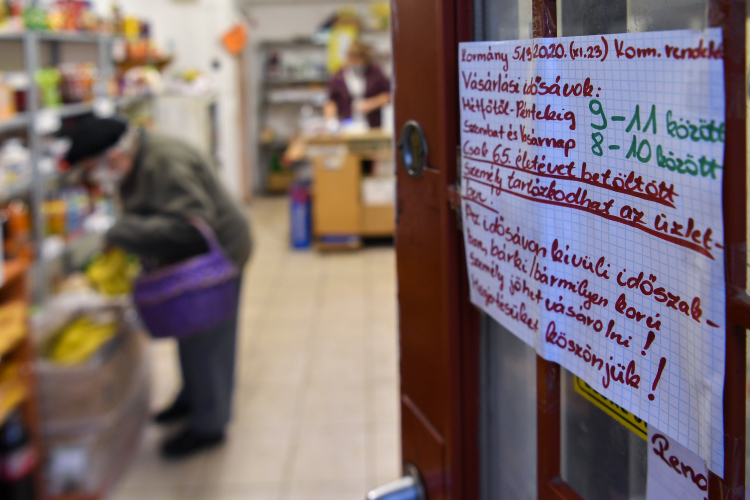 Kormány 519/2020. (XI.23) Korm. rendele
Vásárlási idősávok:
Hétfőtől-Péntekig 9-11 között
Szombat és Vasárnap 8-10 között
Csak 65. életévet betöltött
személy tartózkodhat az üzlet-
ben!
Az idősávon kívüli időszak-
ban, bárki/bármilyen korú
személy jöhet vásárolni!
Megértésüket köszönjük!
Rend